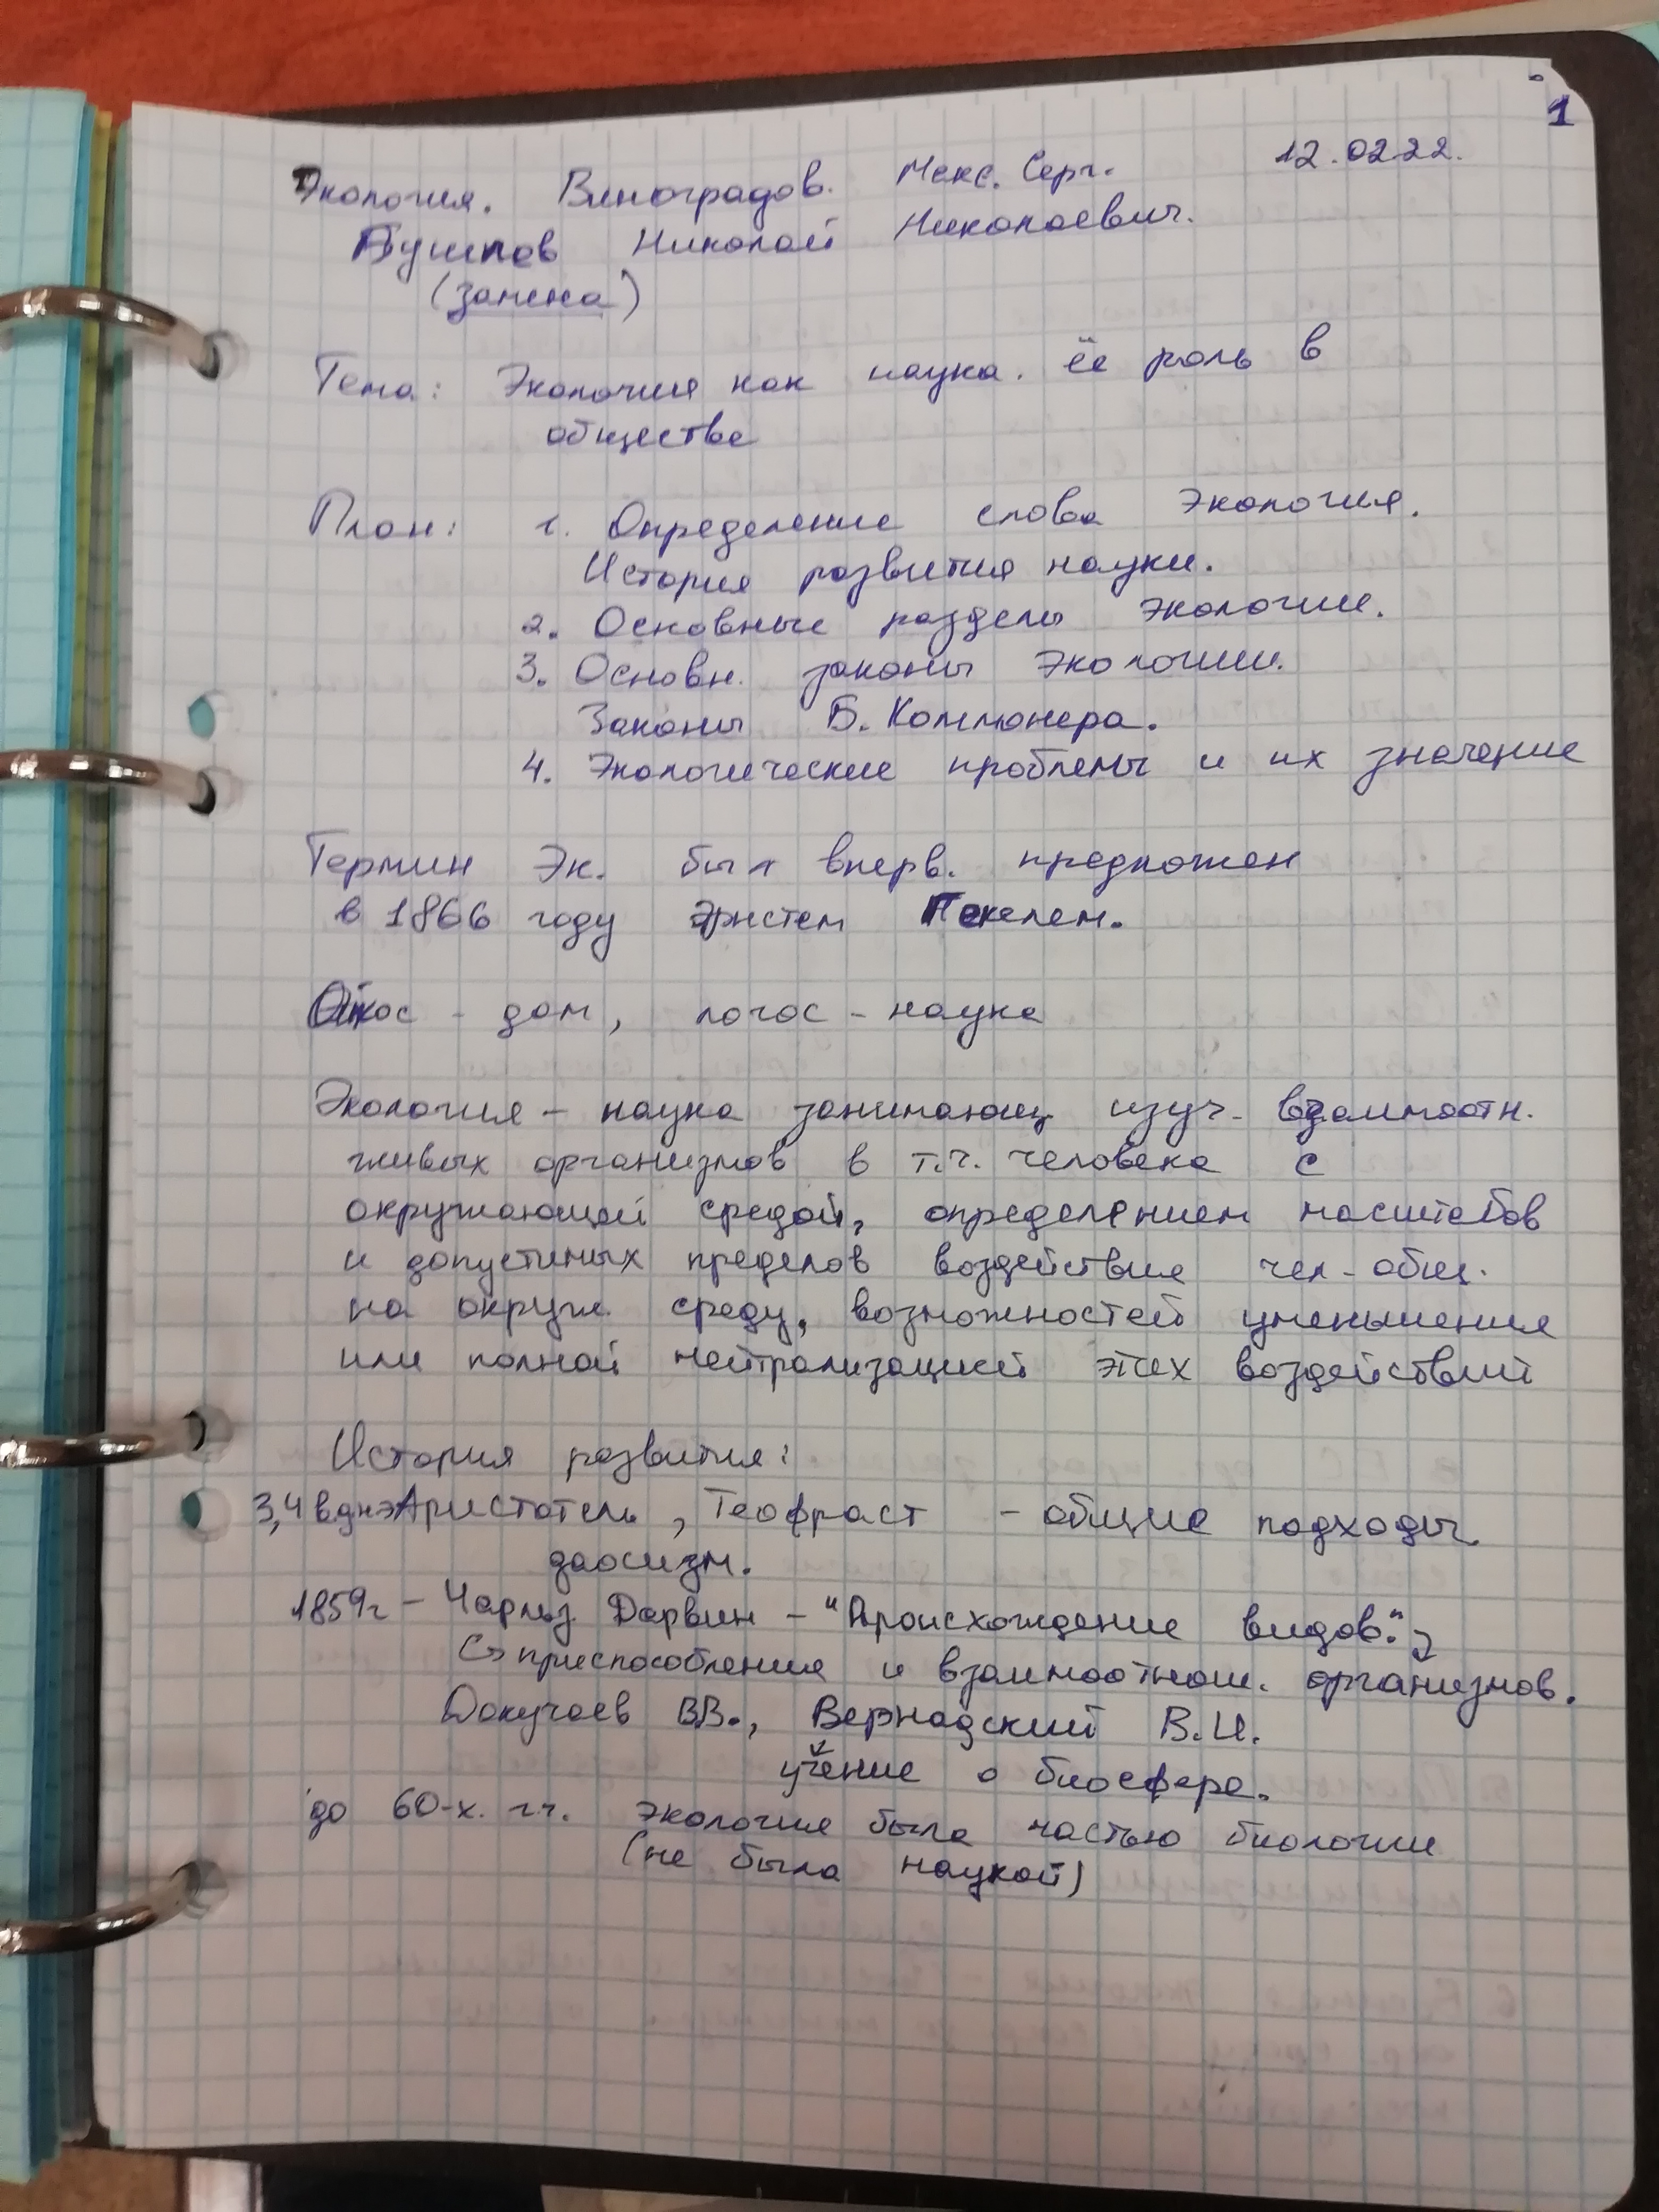 1
Экология. Виноградов. Макс. Серг. 12.02.22.
Николай Николаевич.
(замена)
Тема: Экология как наука. Её роль в
обществе
План: 1. Определение слова экология.
История развития науки.
2. Основные разделы экологии.
3. Основн. законы экологии.
Законы Б. Коммонера.
4. Экологические проблемы и их значение
Термин Эк. был вперв. предложен
в 1866 году Эрнстем Гекелем.
Ойкос - дом, логос - наука
Экология - наука занимающ изуч. взаимоотн.
живых организмов в т.ч. человека с
окружающей средой, определением масштабов
и допустимых пределов воздействия чел. общ.
на окруж. среду, возможностей уменьшения
или полной нейтрализацией этих воздействий
История развития:
3,4 в днэ Аристотель, Теофраст - общие подходы
даосизм.
1859г - Чарльз Дарвин - "Происхождение видов."
приспособления и взаимоотнош. организмов.
Докучаев В.В., Вернадский В.И.
учение о биосфере.
до 60-х. гг. экология была частью биологии
(не была наукой)